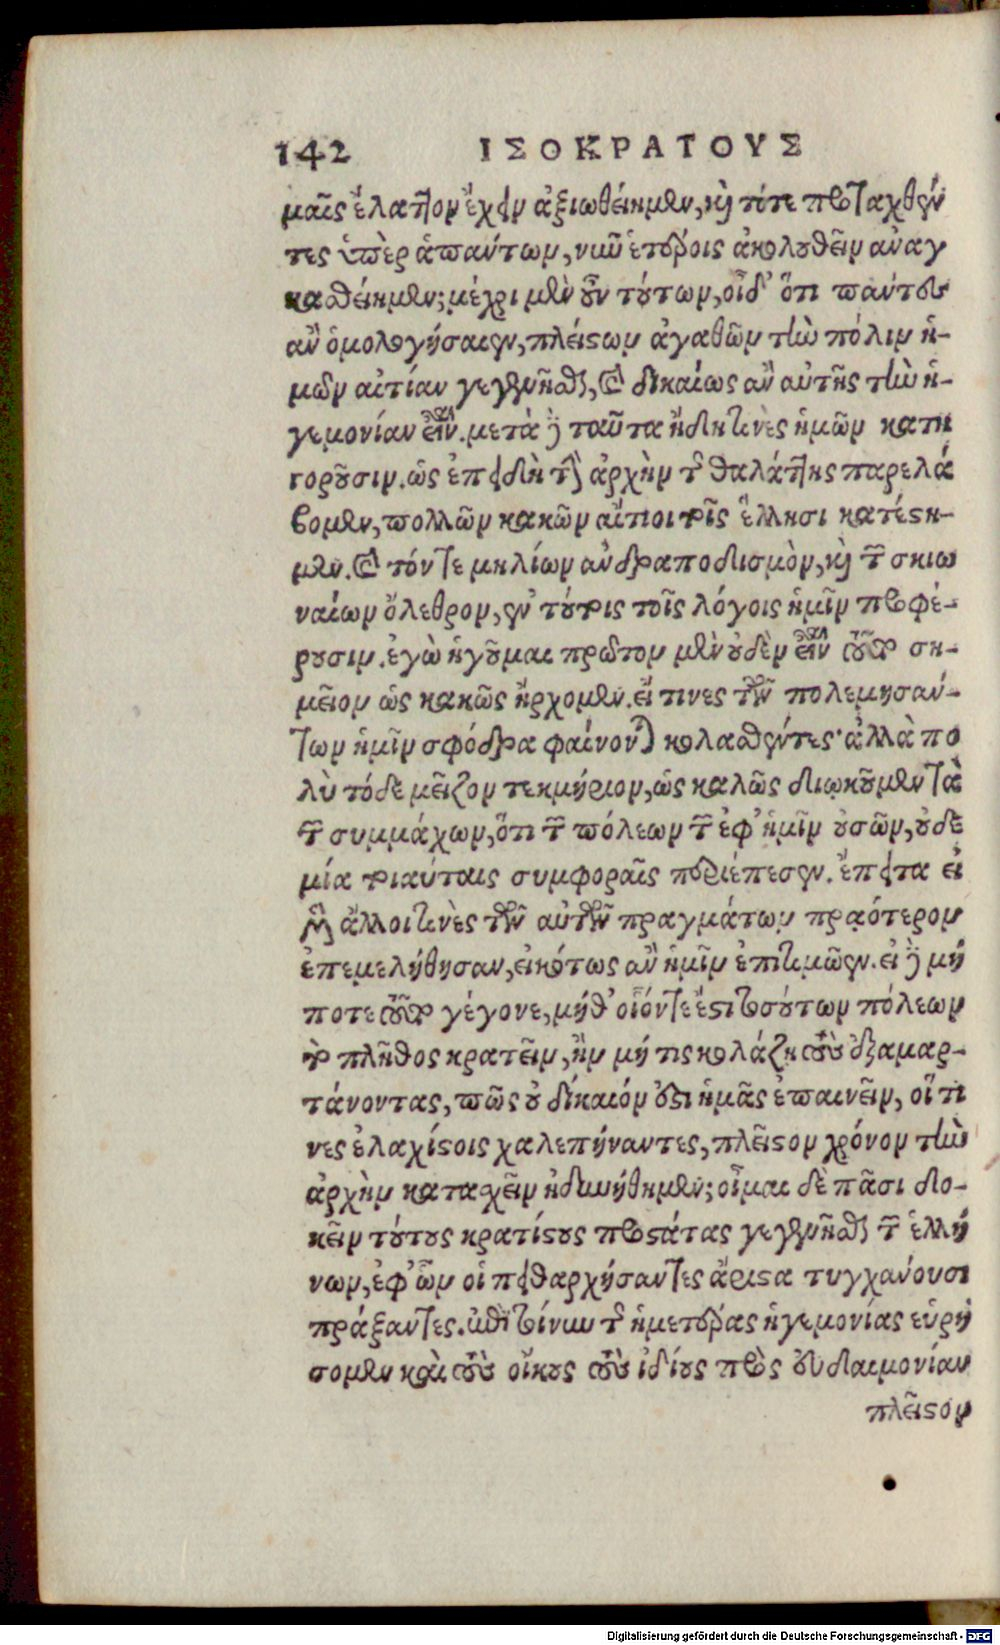 142 ΙΣΟΚΡΑΤΟΥΣ
μαῖς ἔλαττον ἔχειν ἀξιωθείημεν, καὶ τότε προταχθέν
τες ὑπὲρ ἁπάντων, νῦν ἑτέροις ἀκολουθεῖν ἀναγ
κασθείημεν; μέχρι μὲν οὖν τούτων, οἶδ' ὅτι πάντες
ἂν ὁμολογήσαιεν, πλείστων ἀγαθῶν τὴν πόλιν ἡ-
μῶν αἰτίαν γεγενῆσθαι, καὶ δικαίως ἂν αὐτῆς τὴν ἡ-
γεμονίαν εἶναι. μετὰ δὲ ταῦτα ἤδη τινὲς ἡμῶν κατη
γοροῦσιν. ὡς ἐπειδὴ τὴν ἀρχὴν τῆς θαλάττης παρελά
βομεν, πολλῶν κακῶν αἴτιοι τοῖς ἕλλησι κατέστη-
μεν. καὶ τόν τε μηλίων ἀνδραποδισμὸν, καὶ τῶν σκιω
ναίων ὄλεθρον, ἐν τούτοις τοῖς λόγοις ἡμῖν προφέ-
ρουσιν. ἐγὼ ἡγοῦμαι πρῶτον μὲν οὐδὲν εἶναι τοῦτο ση-
μεῖον ὡς κακῶς ἤρχομεν. εἴ τινες τῶν πολεμησάν-
των ἡμῖν σφόδρα φαίνονται κολασθέντες· ἀλλὰ πο
λὺ τόδε μεῖζον τεκμήριον, ὡς καλῶς διῳκοῦμεν τὰ
τῶν συμμάχων, ὅτι τῶν πόλεων τῶν ἐφ' ἡμῖν οὐσῶν, οὐδε
μία τοιαύταις συμφοραῖς περιέπεσεν. ἔπειτα εἰ
μὲν ἄλλοι τινὲς τῶν αὐτῶν πραγμάτων πρᾳότερον
ἐπεμελήθησαν, εἰκότως ἂν ἡμῖν ἐπιτιμῷεν. εἰ δὲ μή
ποτε τοῦτο γέγονε, μήθ' οἷόν τε ἐστὶ τοσούτων πόλεων
τὸ πλῆθος κρατεῖν, ἢν μή τις κολάζῃ τοὺς ἐξαμαρ-
τάνοντας, πῶς οὐ δίκαιόν ἐστι ἡμᾶς ἐπαινεῖν, οἵ τι
νες ἐλαχίστοις χαλεπήναντες, πλεῖστον χρόνον τὴν
ἀρχὴν κατασχεῖν ἠδυνήθημεν; οἶμαι δὲ πᾶσι δο-
κεῖν τούτους κρατίστους προστάτας γεγενῆσθαι τῶν ἑλλή
νων, ἐφ' ὧν οἱ πειθαρχήσαντες ἄριστα τυγχάνουσι
πράξαντες. ἐπὶ τοίνυν τῆς ἡμετέρας ἡγεμονίας εὑρή
σομεν καὶ τοὺς οἴκους τοὺς ἰδίους πρὸς εὐδαιμονίαν
πλεῖστον
Digitalisierung gefördert durch die Deutsche Forschungsgemeinschaft - DFG